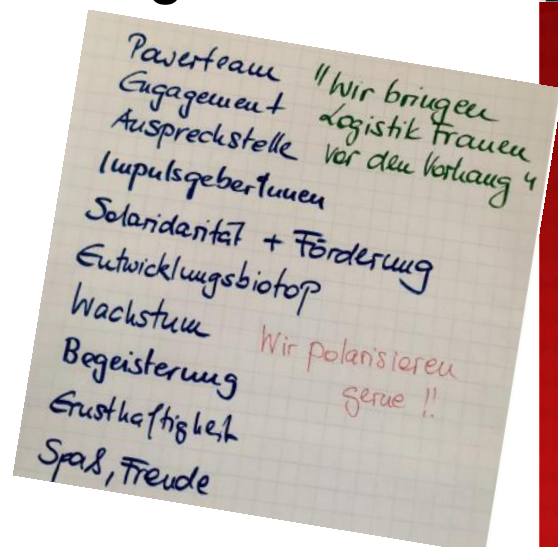 Powerteam
Engagement
Ausprechstelle
ImpulsgeberInnen
Solaridarität + Förderung
Entwicklungsbiotop
Wachstum
Begeisterung
Ernsthaftigkeit
Spaß, Freude
"Wir bringen
Logistik Frauen
vor den Vorhang"
Wir polarisieren
gerne !!